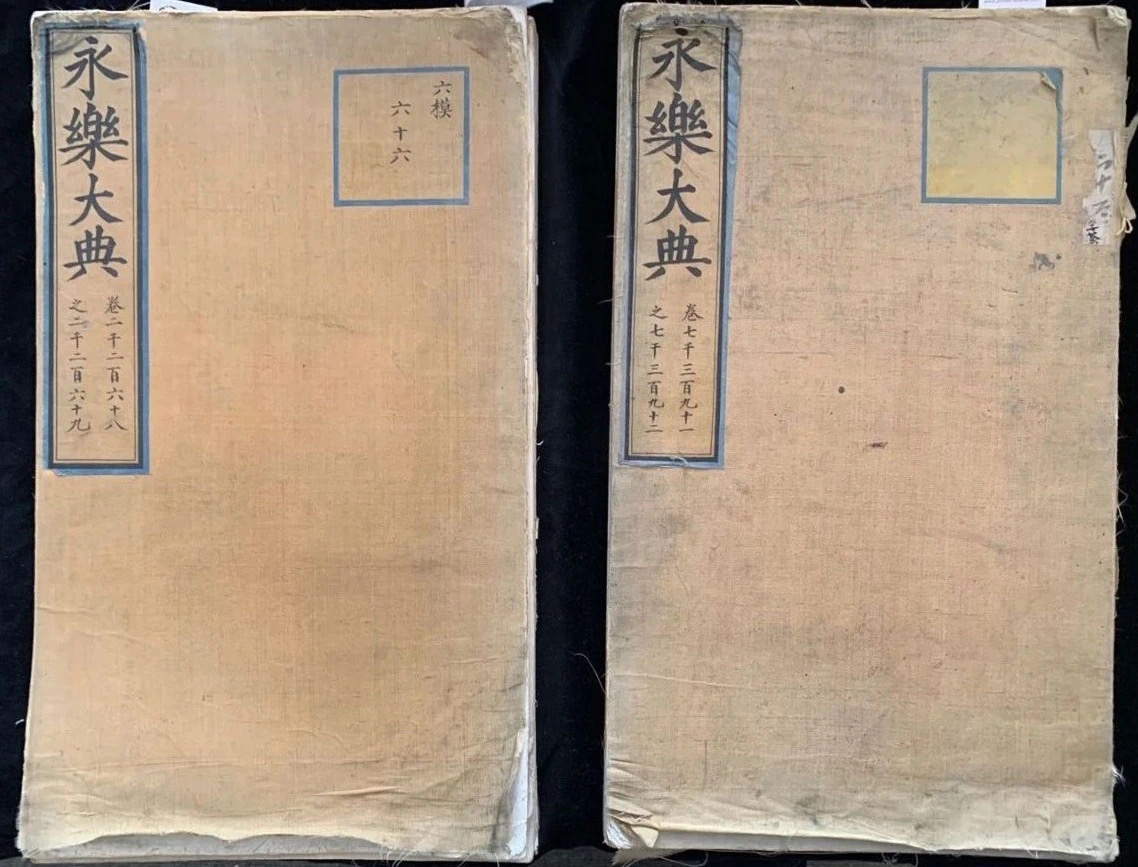 永樂大典
卷二千二百六十八
之二千二百六十九
六模
六十六
永樂大典
卷七千三百九十一
之七千三百九十二